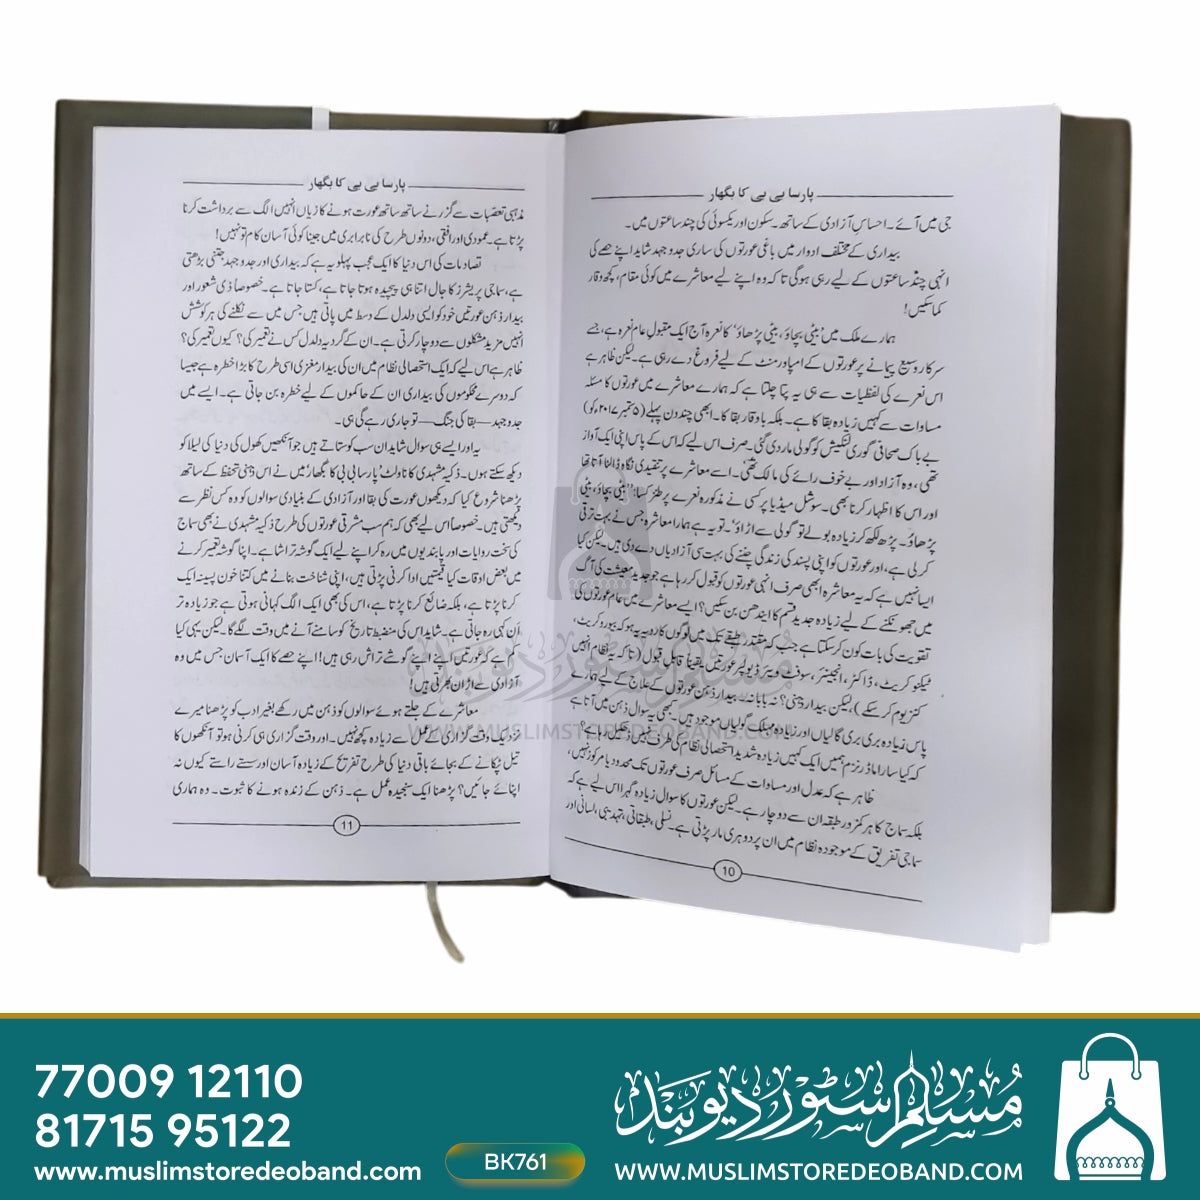 پارسا بی بی کا بگھار
جی میں آئے۔ احساسِ آزادی کے ساتھ۔ سکون اور یکسوئی کی چند ساعتوں میں۔
بیداری کے مختلف ادوار میں باغی عورتوں کی ساری جدوجہد شاید اپنے حصے کی
انہی چند ساعتوں کے لیے رہی ہوگی تاکہ وہ اپنے لیے معاشرے میں کوئی مقام، کچھ وقار
کما سکیں!
ہمارے ملک میں ’بیٹی بچاؤ، بیٹی پڑھاؤ‘ کا نعرہ آج ایک مقبول عام نعرہ ہے، جسے
سرکار وسیع پیمانے پر عورتوں کے امپاورمنٹ کے لیے فروغ دے رہی ہے۔ لیکن ظاہر ہے
اس نعرے کی لفظیات سے ہی یہ پتا چلتا ہے کہ ہمارے معاشرے میں عورتوں کا مسئلہ
مساوات سے کہیں زیادہ بقا کا ہے۔ بلکہ باوقار بقا کا۔ ابھی چند دن پہلے (۵ ستمبر ۲۰۱۷ء کو)
بے باک صحافی گوری لنکیش کو گولی مار دی گئی۔ صرف اس لیے کہ اس کے پاس اپنی ایک آواز
تھی، وہ آزاد اور بے خوف رائے کی مالک تھی۔ اسے معاشرے پر تنقیدی نگاہ ڈالنا آتا تھا
اور اس کا اظہار کرنا بھی۔ سوشل میڈیا پر کسی نے مذکورہ نعرے پر طنز کسا: ’’بیٹی بچاؤ، بیٹی
پڑھاؤ۔ پڑھ لکھ کر زیادہ بولے تو گولی سے اڑاؤ‘‘۔ تو یہ ہے ہمارا معاشرہ جس نے بہت ترقی
کر لی ہے، اور عورتوں کو اپنی پسند کی زندگی چننے کی بہت سی آزادیاں دے دی ہیں۔ لیکن کیا
ایسا نہیں ہے کہ یہ معاشرہ ابھی صرف انہی عورتوں کو قبول کر رہا ہے جو جدید معیشت کی آگ
میں جھونکنے کے لیے زیادہ جدید قسم کا ایندھن بن سکیں؟ ایسے معاشرے میں عام عورتوں کی
تقویت کی بات کون کر سکتا ہے جب کہ مقتدر طبقے تک میں لوگوں کا رویہ یہ ہو کہ بیوروکریٹ،
ٹیکنوکریٹ، ڈاکٹر، انجینئر، سوفٹ ویئر ڈیولپر عورتیں یقیناً قابل قبول (تاکہ یہ نظام انہیں
کنزیوم کر سکے)، لیکن بیدار ذہنی؟ نہ بابا نہ۔ بیدار ذہن عورتوں کے علاج کے لیے ہمارے
پاس زیادہ بری بری گالیاں اور زیادہ مہلک گولیاں موجود ہیں۔ بھی یہ سوال ذہن میں آتا ہے
کہ کیا سارا ماڈرنزم ہمیں ایک کہیں زیادہ شدید استحصالی نظام کی طرف نہیں دھکیل رہا ہے؟
ظاہر ہے کہ عدل اور مساوات کے مسائل صرف عورتوں تک محدود یا مرکوز نہیں،
بلکہ سماج کا ہر کمزور طبقہ ان سے دوچار ہے۔ لیکن عورتوں کا سوال زیادہ گہرا اس لیے ہے کہ
سماجی تفریق کے موجودہ نظام میں ان پر دوہری مار پڑتی ہے۔ نسلی، طبقاتی، تہذیبی، لسانی اور
10
پارسا بی بی کا بگھار
مذہبی تعصبات سے گزرنے کے ساتھ ساتھ عورت ہونے کا زیاں انہیں الگ سے برداشت کرنا
پڑتا ہے۔ عمودی اور افقی، دونوں طرح کی نابرابری میں جینا کوئی آسان کام تو نہیں!
تصادمات کی اس دنیا کا ایک عجب پہلو یہ ہے کہ بیداری اور جدوجہد جتنی بڑھتی
ہے، سماجی پریشرز کا جال اتنا ہی پیچیدہ ہوتا جاتا ہے، کستا جاتا ہے۔ خصوصاً ذی شعور اور
بیدار ذہن عورتیں خود کو ایسی دلدل کے وسط میں پاتی ہیں جس میں سے نکلنے کی ہر کوشش
انہیں مزید مشکلوں سے دوچار کرتی ہے۔ ان کے گرد یہ دلدل کس نے تعمیر کی؟ کیوں تعمیر کی؟
ظاہر ہے اس لیے کہ ایک استحصالی نظام میں ان کی بیدار مغزی اسی طرح کا بڑا خطرہ ہے جیسا
کہ دوسرے محکوموں کی بیداری ان کے حاکموں کے لیے خطرہ بن جاتی ہے۔ ایسے میں
جدوجہد — بقا کی جنگ — تو جاری رہے گی ہی۔
یہ اور ایسے ہی سوال شاید ان سب کو ستاتے ہیں جو آنکھیں کھول کی دنیا کی لیلا کو
دیکھ سکتے ہوں۔ ذکیہ مشہدی کا ناولٹ ’پارسا بی بی کا بگھار‘ میں نے اس ذہنی تحفظ کے ساتھ
پڑھنا شروع کیا کہ دیکھوں عورت کی بقا اور آزادی کے بنیادی سوالوں کو وہ کس نظر سے
دیکھتی ہیں۔ خصوصاً اس لیے بھی کہ ہم سب مشرقی عورتوں کی طرح ذکیہ مشہدی نے بھی سماج
کی سخت روایات اور پابندیوں میں رہ کر اپنے لیے ایک گوشہ تراشا ہے۔ اپنا گوشہ تعمیر کرنے
میں بعض اوقات کیا قیمتیں ادا کرنی پڑتی ہیں، اپنی شناخت بنانے میں کتنا خون پسینہ ایک
کرنا پڑتا ہے، بلکہ ضائع کرنا پڑتا ہے، اس کی بھی ایک الگ کہانی ہوتی ہے جو زیادہ تر
اَن کہی رہ جاتی ہے۔ شاید اس کی منضبط تاریخ کو سامنے آنے میں وقت لگے گا۔ لیکن یہی کیا
کم ہے کہ عورتیں اپنے اپنے گوشے تراش رہی ہیں! اپنے حصے کا ایک آسمان جس میں وہ
آزادی سے اڑان بھرتی ہیں!
معاشرے کے جلتے ہوئے سوالوں کو ذہن میں رکھے بغیر ادب کو پڑھنا میرے
نزدیک وقت گزاری کے عمل سے زیادہ کچھ نہیں۔ اور وقت گزاری ہی کرنی ہو تو آنکھوں کا
تیل ٹپکانے کے بجائے باقی دنیا کی طرح تفریح کے زیادہ آسان اور سستے راستے کیوں نہ
اپنائے جائیں؟ پڑھنا ایک سنجیدہ عمل ہے۔ ذہن کے زندہ ہونے کا ثبوت۔ وہ ہماری
11
مسلم سٹور دیوبند
WWW.MUSLIMSTOREDEOBAND.COM
77009 12110
81715 95122
www.muslimstoredeoband.com
BK761
مسلم سٹور دیوبند
WWW.MUSLIMSTOREDEOBAND.COM